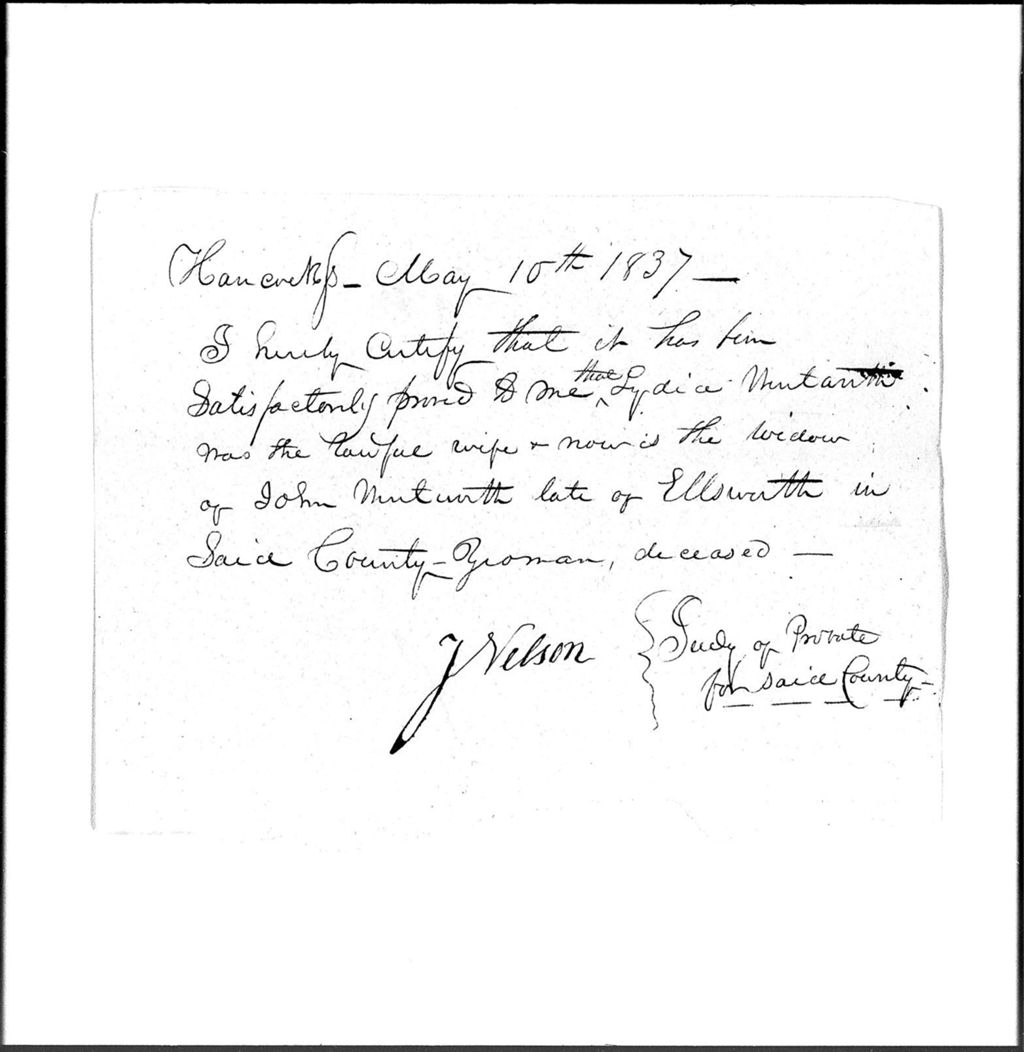 Hancock Ss – May 10th 1837 —
I hereby Certify that it has been
Satisfactorily proved to me that Lydia
was the lawful wife & now is the widow
of John late of Ellsworth in
Said County – Yeoman, deceased —
J Nelson
Judg of Probate
for said County –